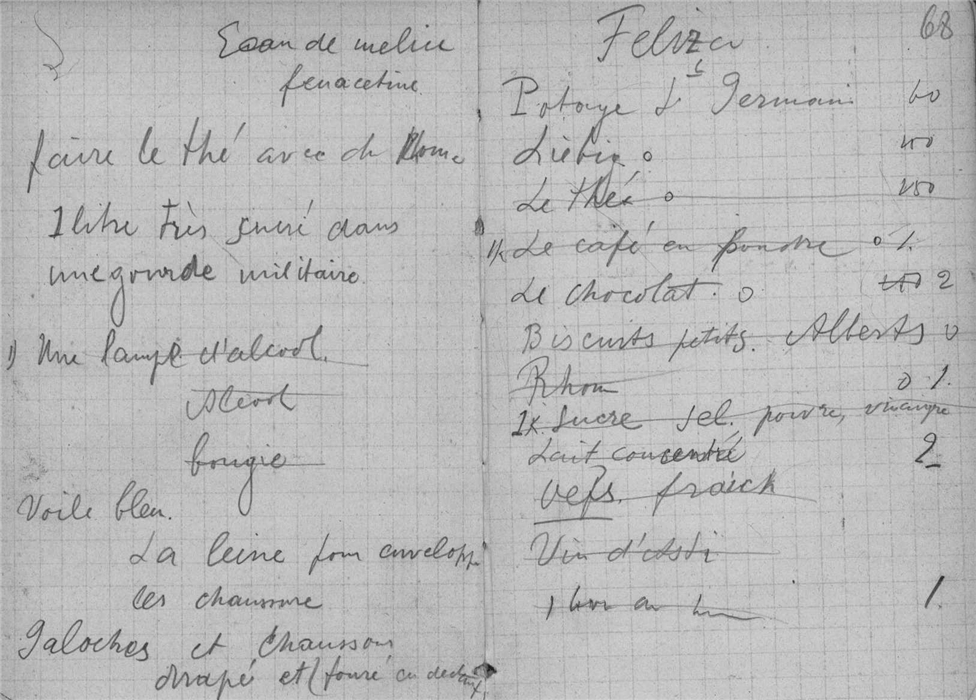 Eau de melice
fenacetine
faire le thé avec du Rhome
1 litre très sucré dans
une gourde militaire.
1) Une lampe d'alcool.
Alcool
bougie
Voile bleu.
La leine pour envelopp
les chaussure
Galoches et Chausson
drapé et (fouré en dedans
68
Feliza
Potage St Germain 60
Liebig o
Le thé o 150
Le café en poudre o 1.
Le chocolat. o 2
Biscuits petits. Alberts o
Rhom o 1.
Sucre Sel. poivre, vinaigre
Lait concentré 2
Oefs. fraich
Vin d'Asti
1.